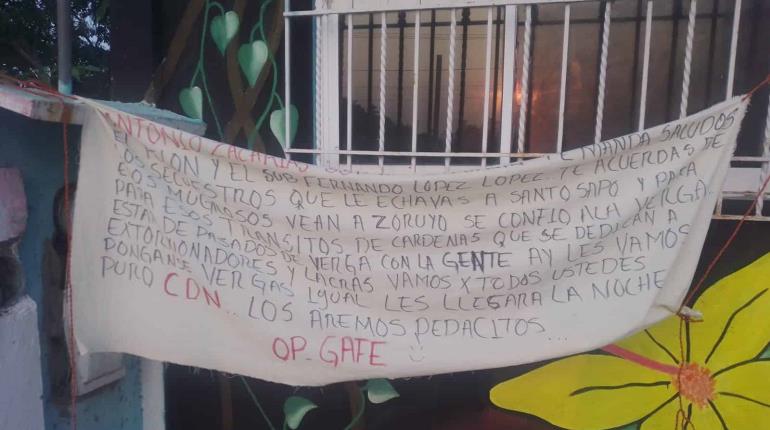 ANTONIO ZACARIAS
E MANDA SALUDOS
EL PELON Y EL SUB FERNANDO LOPEZ LOPEZ TE ACUERDAS DE
LOS SECUESTROS QUE LE ECHAVAS A SANTO SAPO Y PARA
EOS MUGROSOS VEAN A ZORUYO SE CONFIO ALA VERGA
PARA ESOS TRANSITOS DE CARDENAS QUE SE DEDICAN A
ESTAN DE PASADOS DE VERGA CON LA GENTE AY LES VAMOS
EXTORCIONADORES Y LACRAS VAMOS X TODOS USTEDES
DONGANSE VERGAS IGUAL LES LLEGARA LA NOCHE
PURO CDN... LOS AREMOS PEDACITOS...
OP. GAFE